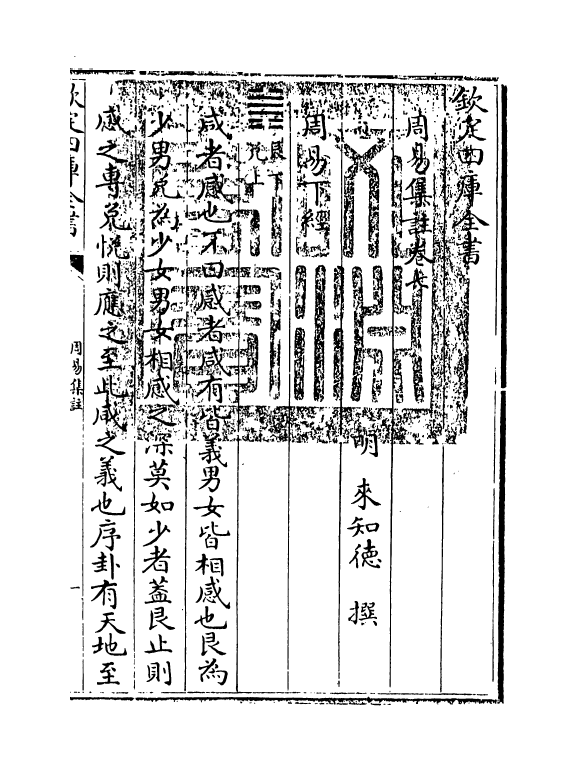 欽定四庫全書
周易集註卷七
明 來知德 撰
周易下經
艮下 兌上
咸者感也不曰感者咸有皆義男女皆相感也艮為
少男兌為少女男女相感之深莫如少者蓋艮止則
感之專兌悅則應之至此咸之義也序卦有天地至
欽定四庫全書
周易集註
一